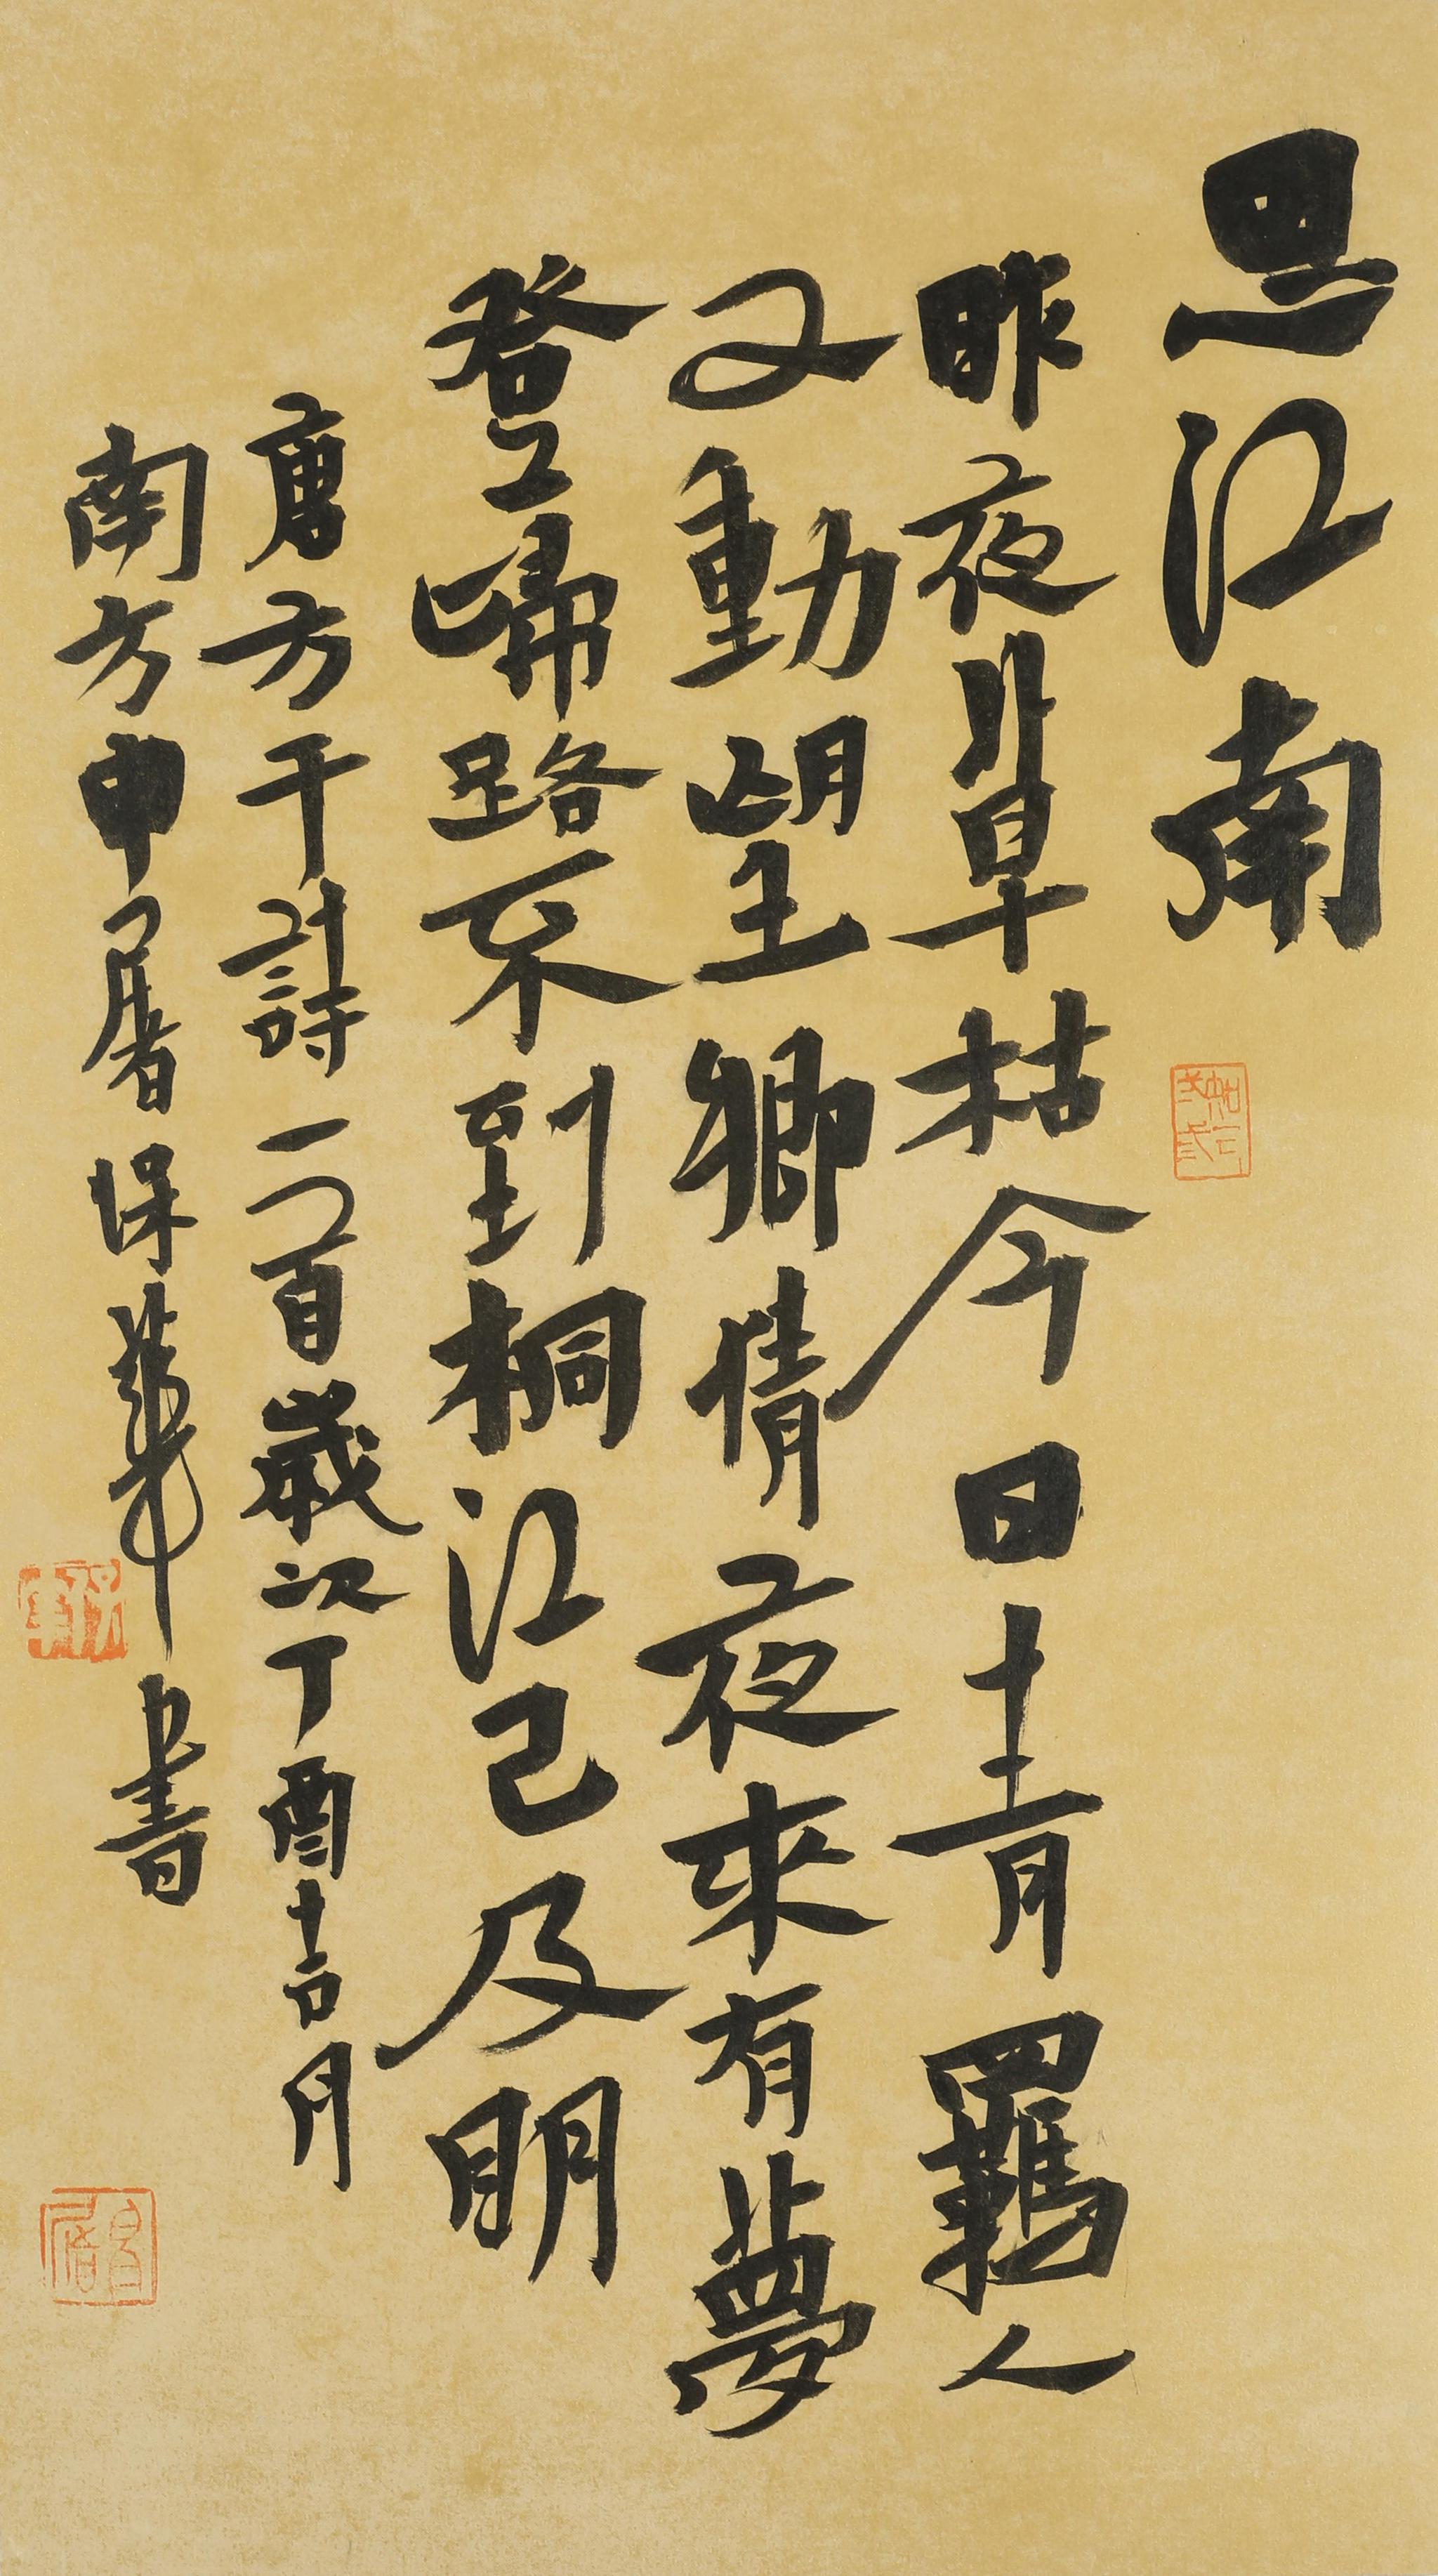 思江南
昨夜草枯今日青羈人
又動望鄉情夜來有夢
登歸路不到桐江已及明
唐方干詩一首歲次丁酉十月
南方申屠保華書